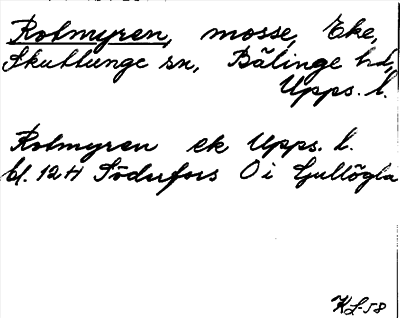 Rotmyren, mosse, Eke,
Skuttunge sn, Bälinge hd,
Upps. l.
Rotmyren ek Upps. l.
bl. 12 H Söderfors O i Gullögla
KL-58